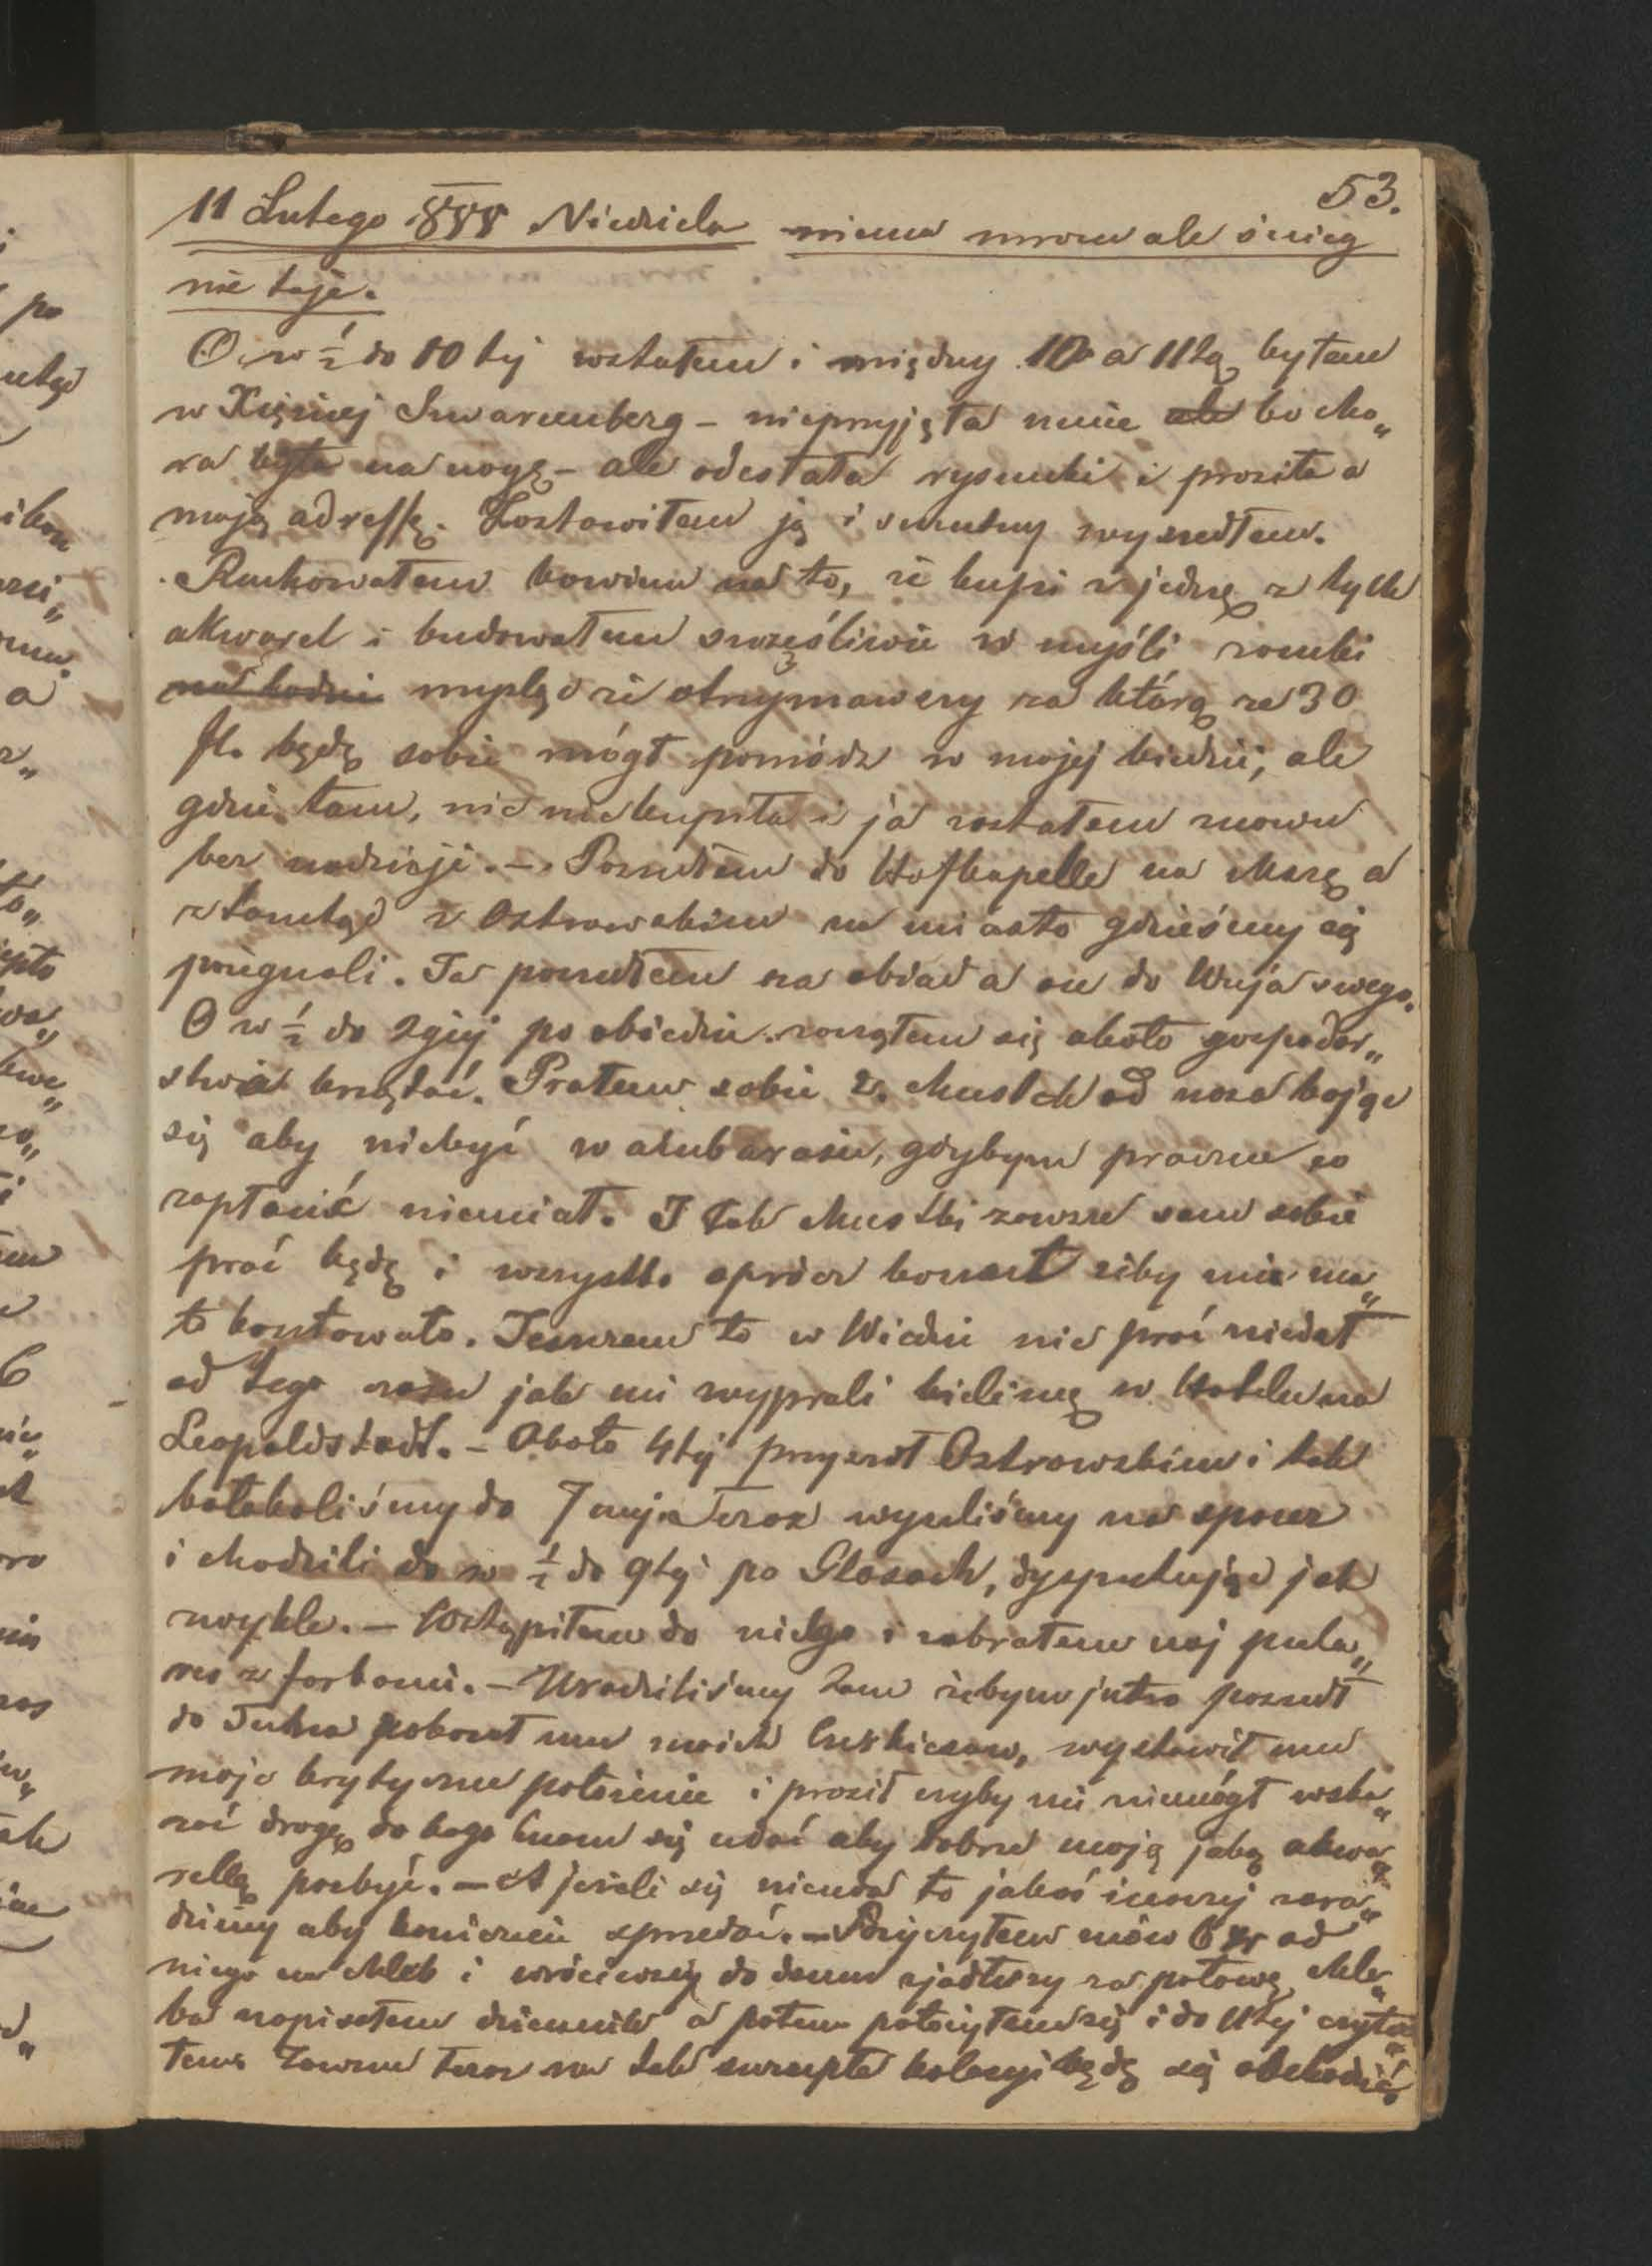 53.
11 Lutego Niedziela niema mrozu ale śnieg
nie taje.
O w ½ do 10tej wstałem i między 10 a 11tą byłem
w Xiężnej Szwarcenberg – nieprzyjęła mnie ale bo cho„
ra była na nogę – ale odesłała rysunki i prosiła o
moją adressę. Zostawiłem ją i smutny wyszedłem.
Rachowałem bowiem na to, że kupi z jedną z tych
akwarel i budowałem szczęśliwie w myśli zamki
na lodzie myśląc że otrzymawszy za którą ze 30
fl. będę sobie mógł pomódz w mojej biedzie, ale
gdzie tam, nic nie kupiła i ja zostałem znowu
bez nadzieji. – Poszedłem do Hofkapelle na Mszę a
ztamtąd z Ostrowskim na miasto gdzieśmy się
pożegnali. Ja poszedłem na obiad a on do Wuja swego.
O w ½ do 2giej po obiedzie wziąłem się około gospodar„
stwa krzątać. Prałem sobie 2. chustek od nosa bojąc
się aby niebyć w ambarasie, gdybym praczce co
zapłacić niemiał. I tak chustki zawsze sam sobie
prać będę i wszystko oprócz koszul żeby mie ma„
ło kosztowało. Jeszczem to w Wiedniu nic prać niedał
od tego czasu jak mi wyprali bieliznę w Hotelu na
Leopoldstadt. – Około 4tej przyszedł Ostrowski i tak
bałakaliśmy do 7mej a teraz wyszliśmy na spacer
i chodzili do w ½ do 9tej po Glasach, dysputując jak
zwykle. – Wstąpiłem do niego i zabrałem moj pula„
res z farbami. – Uradziliśmy tam żebym jutro poszedł
do Tuhra pokazał mu moich Curkiesow, wystawił mu
moje krytyczne położenie i prosił czyby mi niemógł wska„
zać drogę do kogo mam się udać aby dobrze moję jaką akwa„
rellę pozbyć. – A jeżeli się nieuda to jakoś inaczej zara„
dzimy aby koniecznie sprzedać. – Pożyczyłem znów 6 xr od
niego na chleb i wróciwszy do domu zjadłszy za połowę chle„
ba napisałem dziennik a potem położyłem się i do 11tej czyta„
łem. Zawsze teraz na tak szczupłej kolacyi będę się obchodzić,